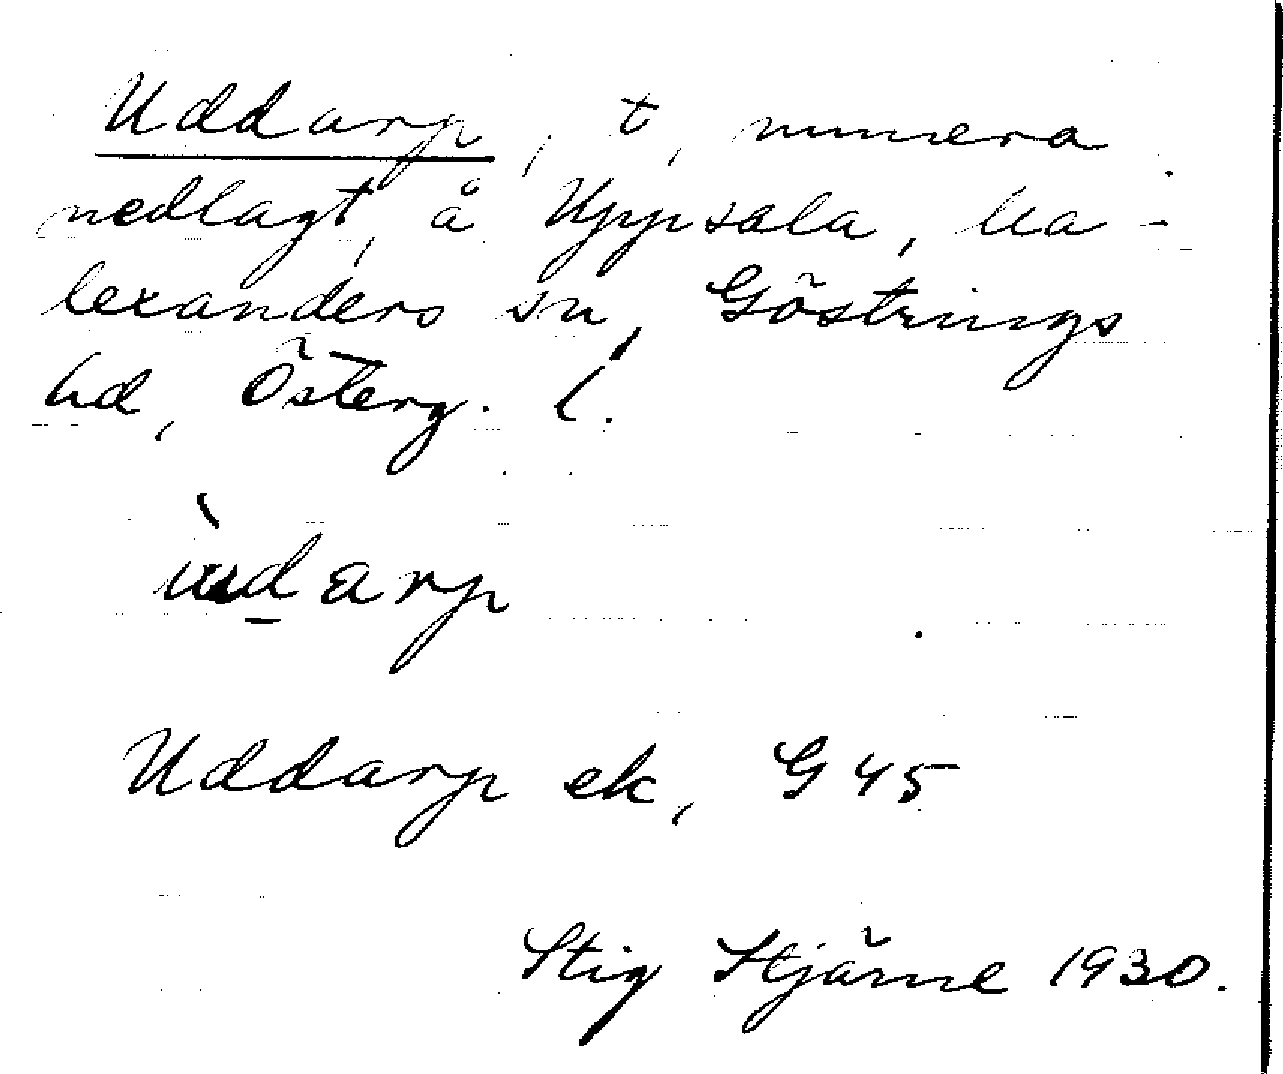 Uddarp, t, numera
nedlagt, å Uppsala, Ka-
lexanders sn, Göstrings
hd, Österg. l.
Uddarp ek, G 45
Stig Hjärne 1930.